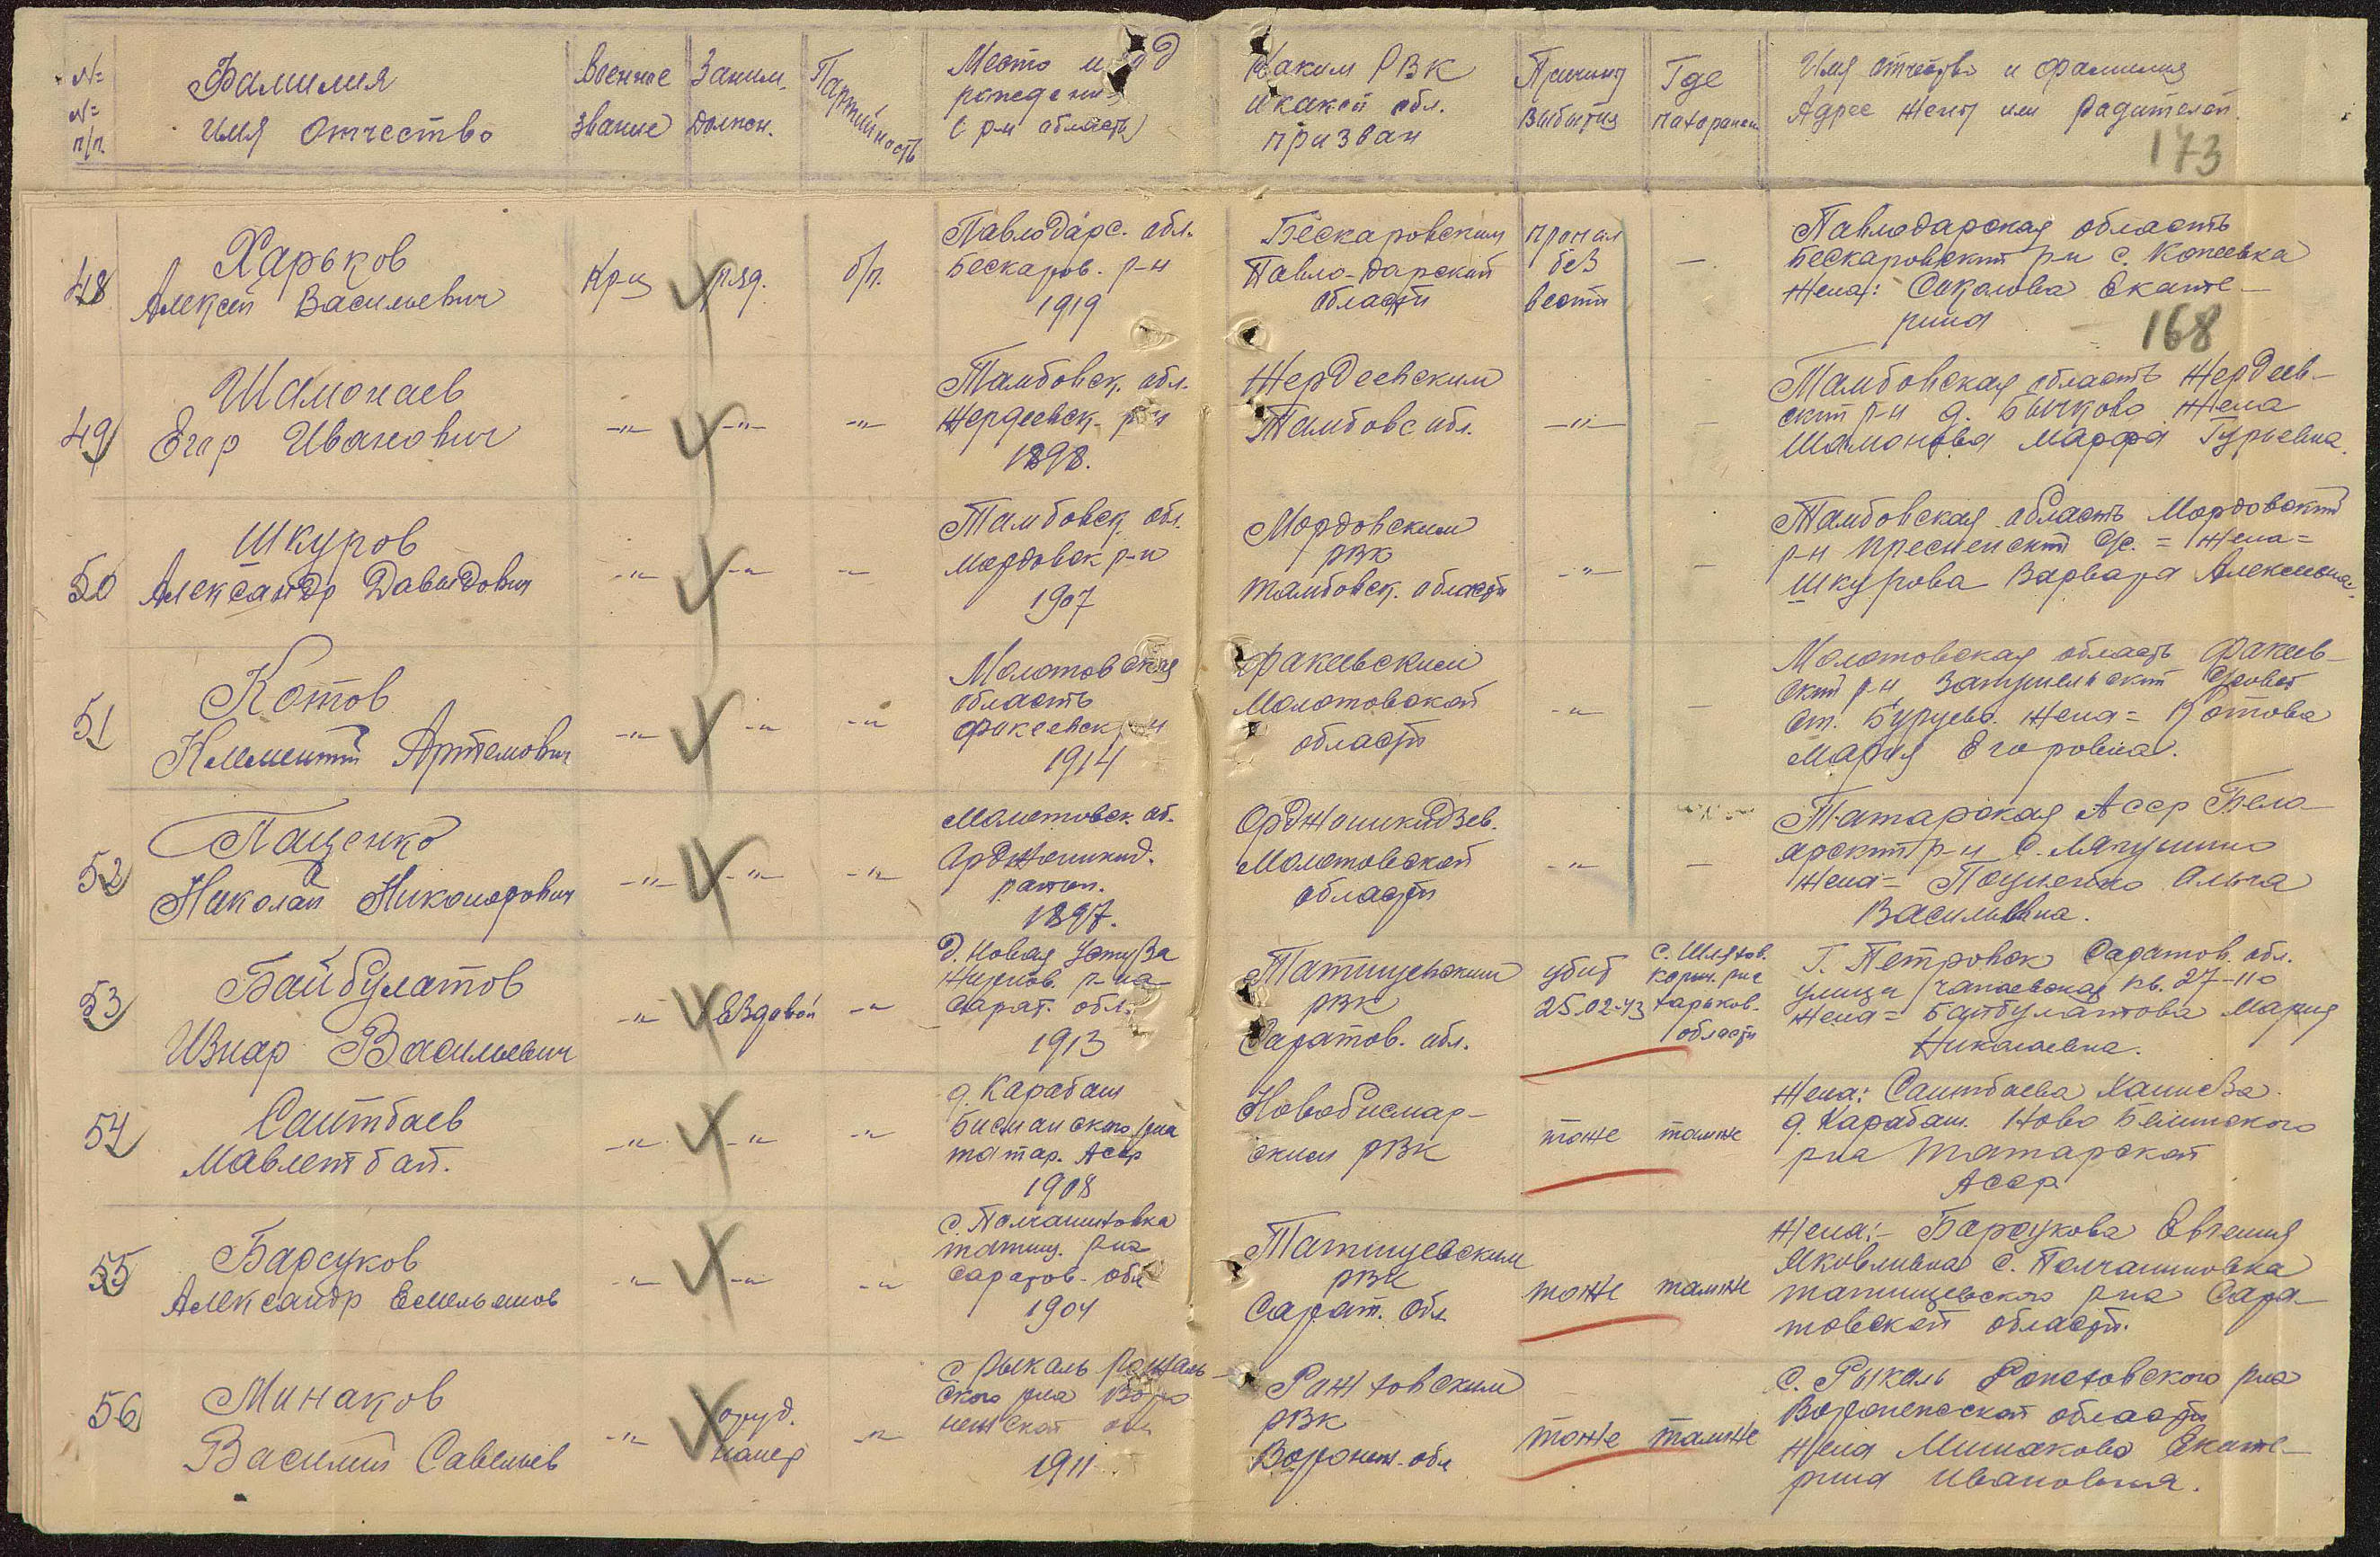 № № п/п
Фамилия
имя отчество
Военное
звание
Заним.
должн.
Партийность
Место и год
рождения
(р-н область)
Каким РВК
и какой обл.
призван
Причина
выбытия
Где
похоронен
Имя отчество и фамилия
Адрес жены или родителей
173
48
Харьков
Алексей Васильевич
Кр-ц
ряд.
б/п.
Павлодарс. обл.
Бескаров. р-н
1919
Бескаровским
Павло-дарской
области
пропал
без
вести
—
Павлодарская область
Бескаровский р-н с. Копеевка
Жена: Соколова Екате-
рина
168
49
Шамонаев
Егор Иванович
-"-
-"-
-"-
Тамбовск. обл.
Жердевск. р-н
1898.
Жердевским
Тамбовс обл.
-"-
—
Тамбовская область Жердев-
ский р-н д. Бычково Жена
Шамонова Марфа Гурьевна.
50
Шкуров
Александр Давыдович
-"-
-"-
-"-
Тамбовск. обл.
Мордовск р-н
1907
Мордовским
РВК
Тамбовск. области
-"-
—
Тамбовская область Мордовский
р-н Пресненский с/с. = Жена =
Шкурова Варвара Алексеевна.
51
Котов
Клементий Артемович
-"-
-"-
-"-
Молотовская
область
Факеевск р-н
1914
Факеевским
Молотовской
области
-"-
—
Молотовская область Факеев-
ский р-н
Жена = Котова
Мария Егоровна.
52
Паценко
Николай Никонорович
-"-
-"-
-"-
Молотовск. об.
Орджоникид.
район.
1897.
Орджоникидзев.
Молотовской
области
-"-
—
Татарская АССР Бело-
ярский р-н с. Лягушино
Жена = Поценко Ольга
Васильевна.
53
Байбулатов
Изнар Васильевич
-"-
Ездовой
-"-
д. Новая
р-на
Сарат. обл.
1913
Татищевским
РВК
Саратов. обл.
убит
25.02.43
с. Шляхов.
Корин. р-на
Харьков.
области
г. Петровск Саратов. обл.
улица Чапаевская кв. 27-110
Жена = Байбулатова Мария
Николаевна.
54
Саитбаев
Мавлетбай.
-"-
-"-
-"-
д. Карабаш
р-на
татар. АССР
1908
Новобисмар-
ским РВК
тоже
тамже
Жена: Саитбаева
д. Карабаш. Ново
р-на Татарской
АССР
55
Барсуков
Александр Емельянов
-"-
-"-
-"-
с. Полчаниновка
татищ. р-на
Саратов. обл
1904
Татищевским
РВК
Сарат. Обл.
тоже
тамже
Жена:- Барсукова Евгения
Яковлевна с. Полчаниновка
татищевского р-на Сара-
товской области.
56
Минаков
Василий Савельев
-"-
оруд.
номер
-"-
с. Рыкань Рожд
ского р-на Воро
нежской обл
1911.
РВК
Воронеж. обл
тоже
тамже
с. Рыкань р-на
Воронежской области
Жена Минакова Екате-
рина Ивановна.